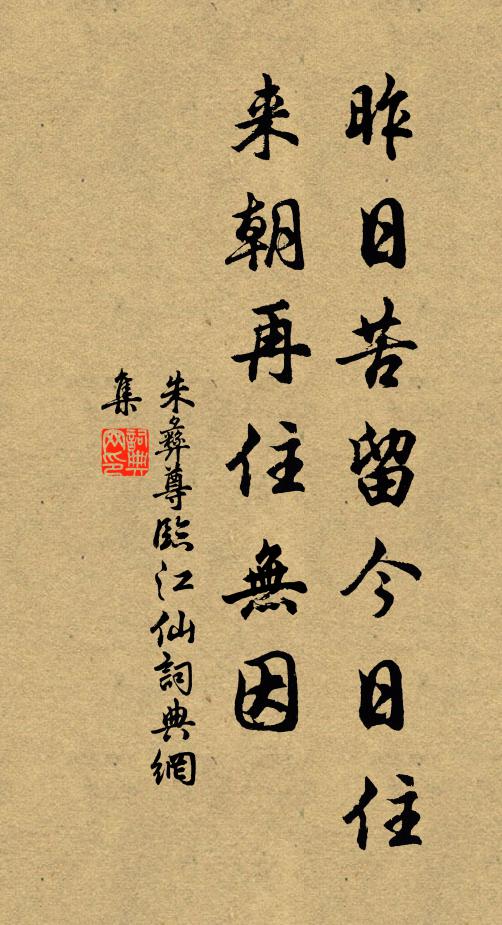 昨日苦留今日住
来朝再住無因
朱彝尊臨江仙詞典網
集
詞典網印